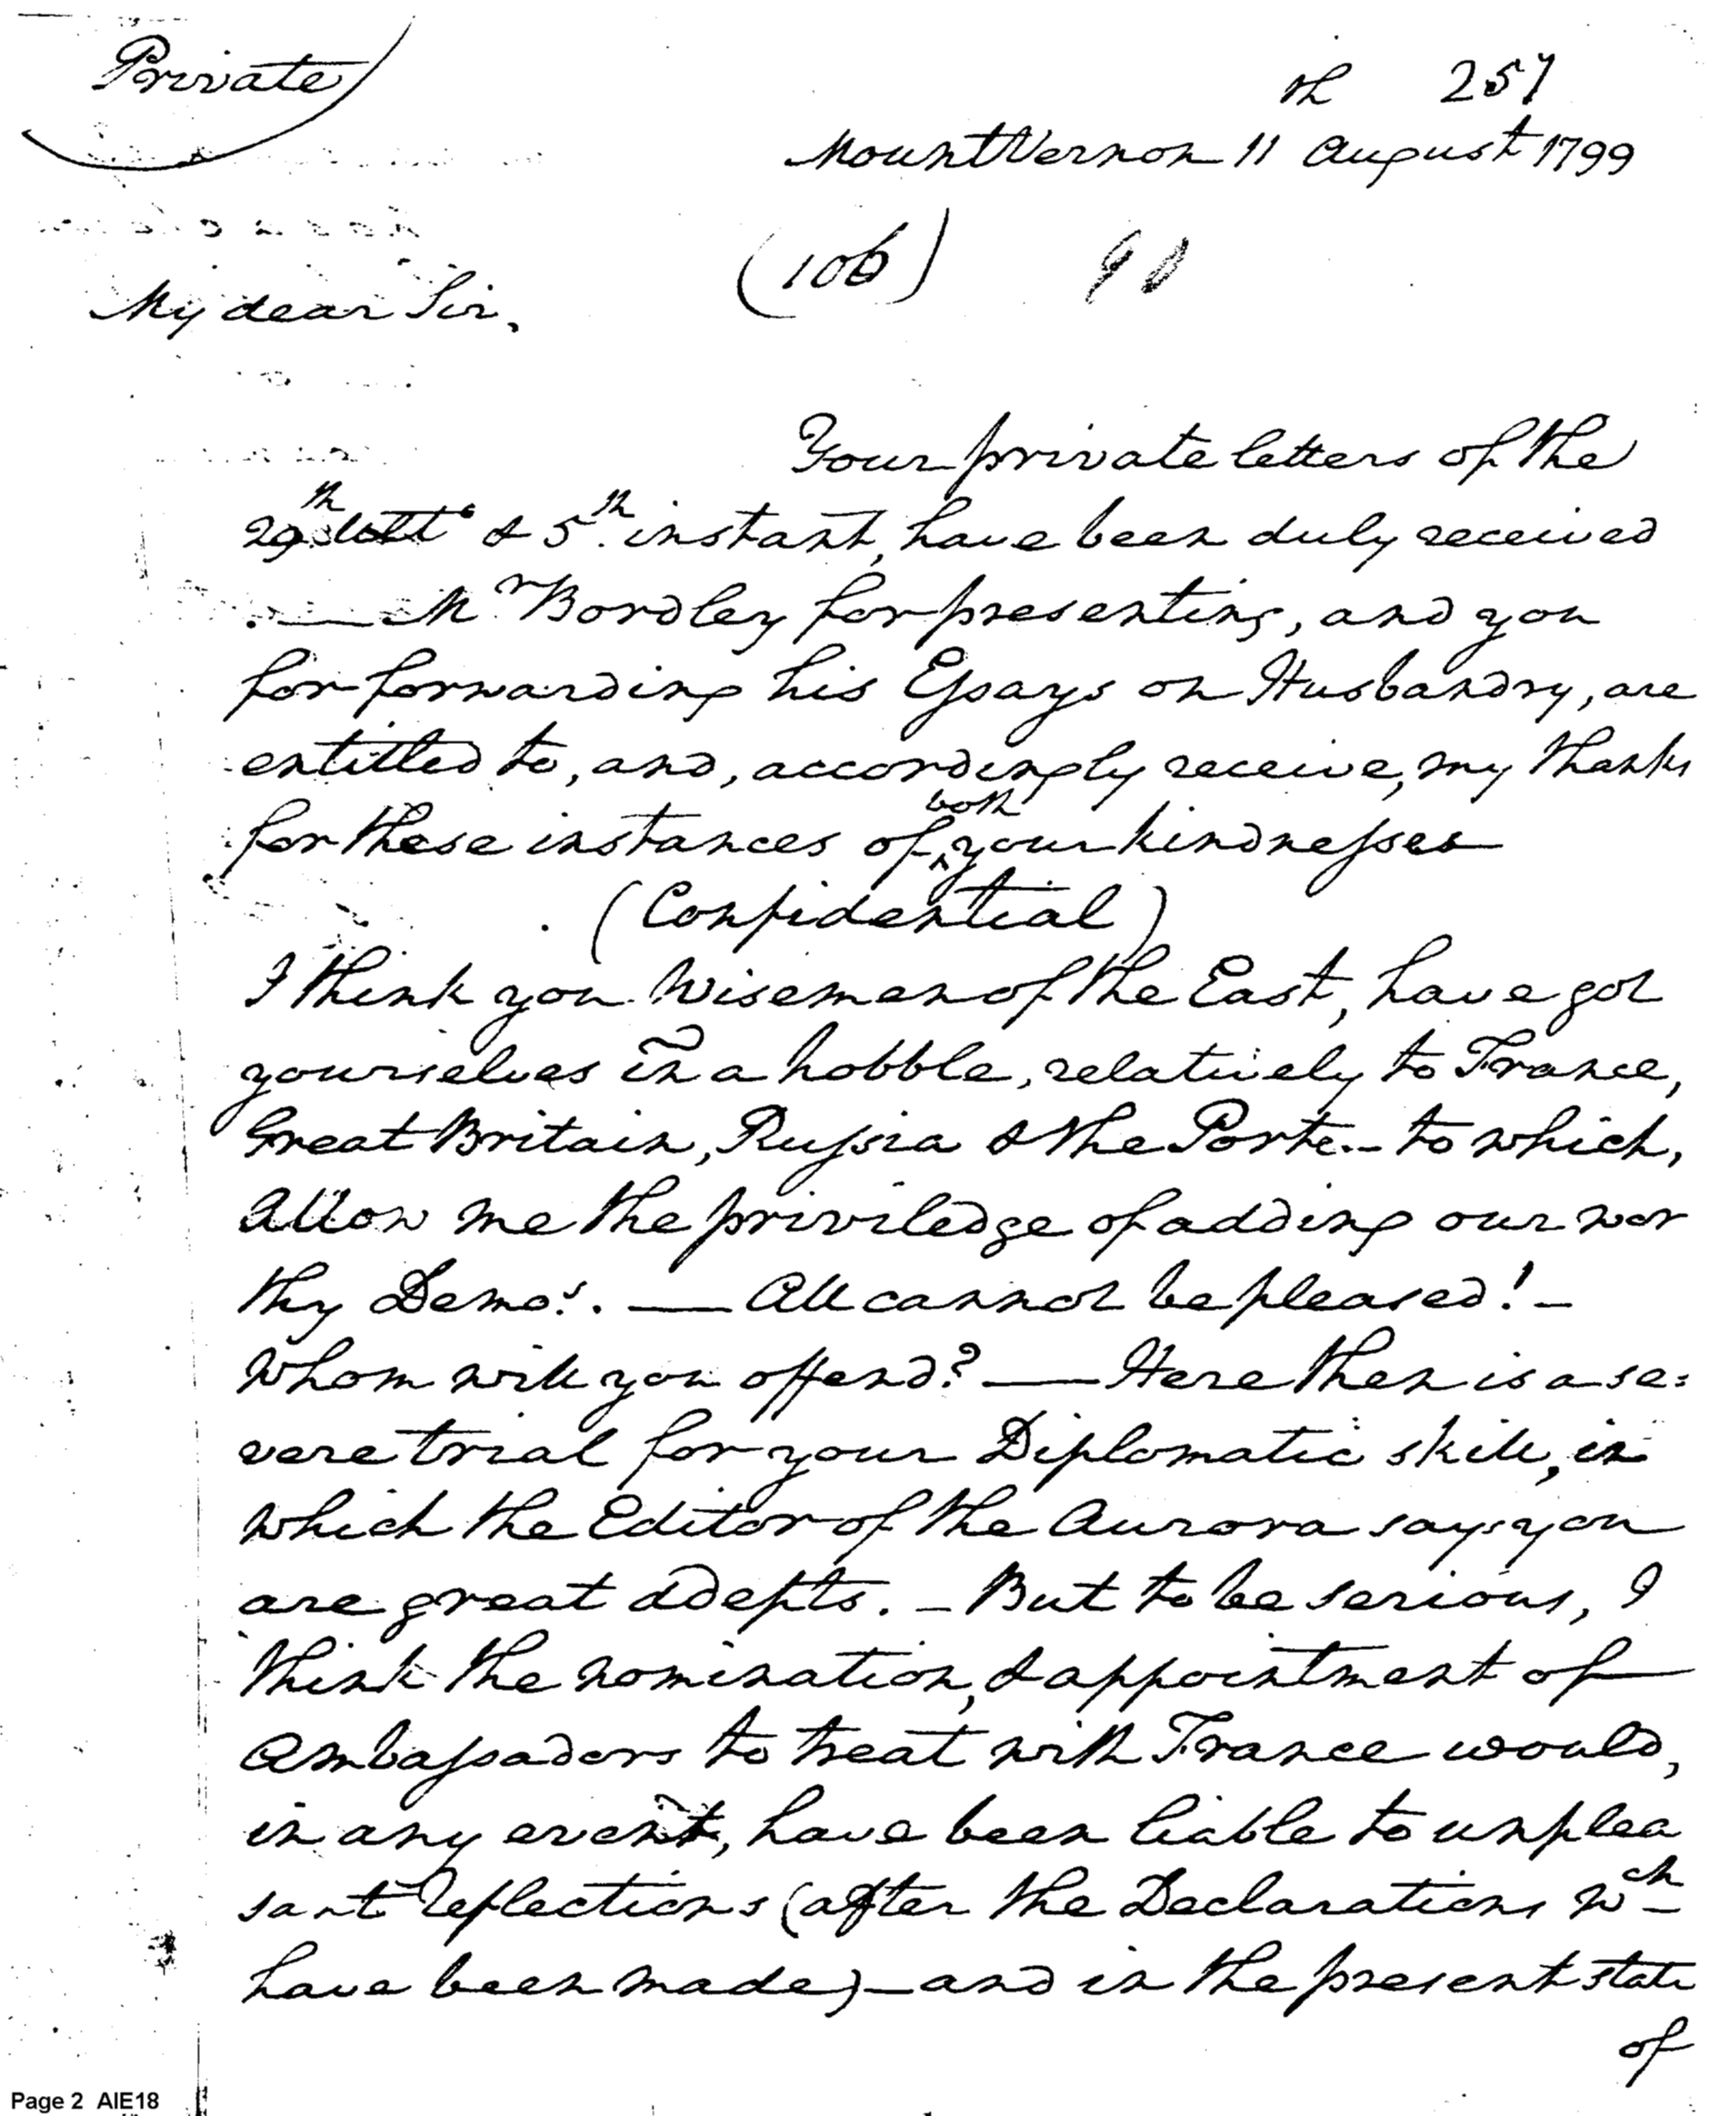 Private
th 257
Mount Vernon 11 August 1799
(106)
My dear Sir,
Your private letters of the
29th ulto & 5th instant, have been duly received
.— Mr Bordley for presenting, and you
for forwarding his Essays on Husbandry, are
entitled to, and, accordingly receive, my thanks
for these instances of both your kindnesses
(Confidential)
I think you Wisemen of the East, have got
yourselves in a hobble, relatively to France,
Great Britain, Russia & the Porte – to which,
allow me the priviledge of adding our wor
thy Demos. — All cannot be pleased! –
Whom will you offend? — Here then is a se=
vere trial for your Diplomatic skill, in
which the Editor of the Aurora says you
are great adepts. – But to be serious, I
think the nomination, & appointment of
Ambassadors to treat with France would,
in any event, have been liable to unplea
sant reflections (after the Declarations wch
have been made) – and in the present state
of
Page 2 AIE18